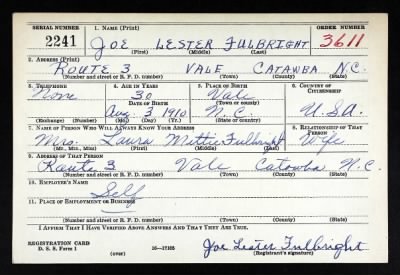 SERIAL NUMBER 1. NAME (Print) ORDER NUMBER
2241 JOE LESTER FULBRIGHT 3611
(First) (Middle) (Last)
2. ADDRESS (Print)
ROUTE 3 VALE CATAWBA N.C.
(Number and street or R. F. D. number) (Town) (County) (State)
3. TELEPHONE 4. AGE IN YEARS 5. PLACE OF BIRTH 6. COUNTRY OF CITIZENSHIP
None 30 Vale
DATE OF BIRTH (Town or county)
Aug 3 1910 N.C. U.S.A.
(Exchange) (Number) (Mo.) (Day) (Yr.) (State or country)
7. NAME OF PERSON WHO WILL ALWAYS KNOW YOUR ADDRESS 8. RELATIONSHIP OF THAT PERSON
Mrs. Laura Mittie Fulbright Wife
(Mr., Mrs., Miss) (First) (Middle) (Last)
9. ADDRESS OF THAT PERSON
Route 3 Vale Catawba N.C.
(Number and street or R. F. D. number) (Town) (County) (State)
10. EMPLOYER'S NAME
Self
11. PLACE OF EMPLOYMENT OR BUSINESS
(Number and street or R. F. D. number) (Town) (County) (State)
I AFFIRM THAT I HAVE VERIFIED ABOVE ANSWERS AND THAT THEY ARE TRUE.
REGISTRATION CARD
D. S. S. Form 1 (over) Joe Lester Fulbright
(Registrant's signature)